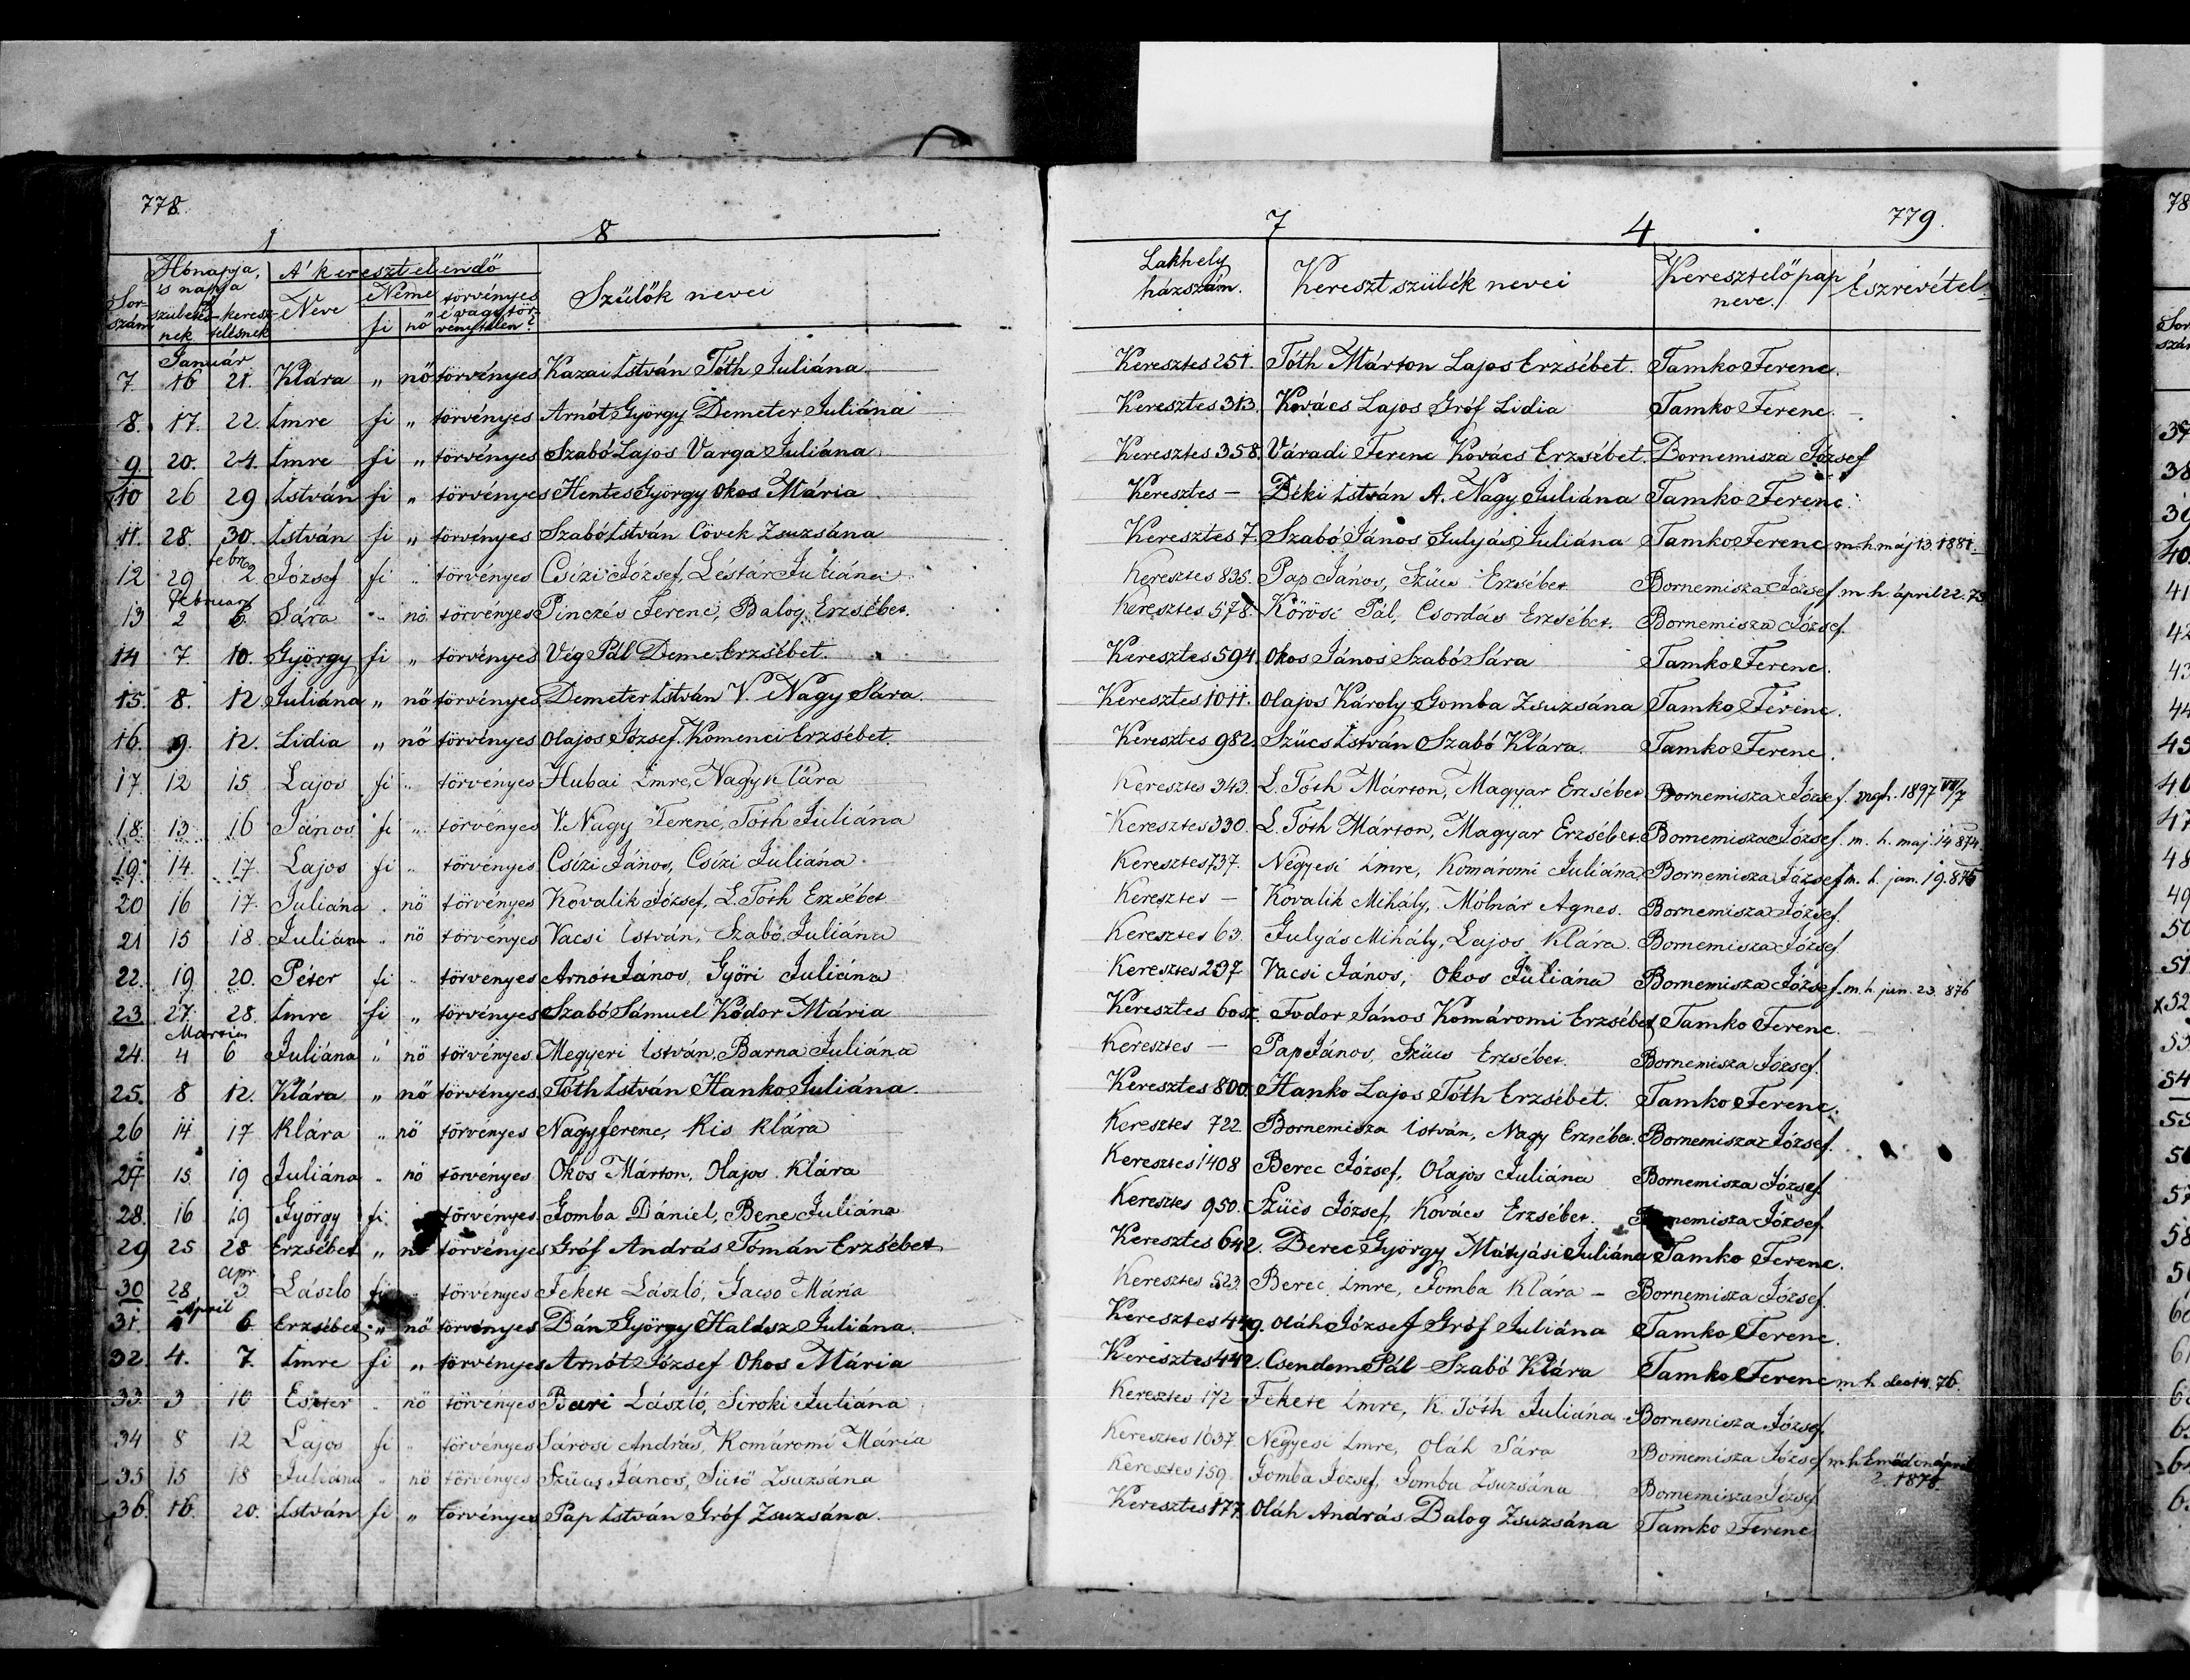 778. 779.
1 8 7 4
Sorszám Hónapja, és napja születésnek keresztelésnek A' keresztelendő Neve Neme fi nő törvényes é vagy törvénytelen? Szülők nevei Lakhely házszám. Kereszt szülék nevei Keresztelő pap neve. Észrevétel
Január
7. 16 21. Klára " nő törvényes Kazai István Tóth Juliána Keresztes 251. Tóth Márton Lajos Erzsébet. Tamko Ferenc.
8. 17. 22. Imre fi " törvényes Arnót György Demeter Juliána Keresztes 313. Kovács Lajos Gróf Lidia Tamko Ferenc.
9 20. 24. Imre fi " törvényes Szabó Lajos Varga Juliána Keresztes 358. Váradi Ferenc Kovács Erzsébet. Bornemisza József
10 26 29 István fi " törvényes Hentes György Okos Mária Keresztes – Béki István A. Nagy Juliána Tamko Ferenc.
11. 28. 30. István fi " törvényes Szabó István Cövek Zsuzsána Keresztes 7. Szabó János Gulyás Juliána Tamko Ferenc m.h. máj 13. 1881.
febr.
12 29 2. József fi " törvényes Csízi József, Léstár Juliána Keresztes 835. Pap János, Szűcs Erzsébet Bornemisza József. m. h. ápril 22. 75
Február
13 2 6. Sára " nő törvényes Pinczés Ferenc, Balog Erzsébet. Keresztes 578. Körösi Pál, Csordás Erzsébet. Bornemisza József.
14 7. 10. György fi " törvényes Vég Pál Deme Erzsébet. Keresztes 594. Okos János Szabó Sára Tamko Ferenc.
15. 8. 12. Juliána " nő törvényes Demeter István V. Nagy Sára. Keresztes 1011. Olajos Károly Gomba Zsuzsána Tamko Ferenc.
16. 9. 12. Lidia " nő törvényes Olajos József Komenci Erzsébet. Keresztes 982. Szűcs István Szabó Klára. Tamko Ferenc.
17. 12 15 Lajos fi " törvényes Hubai Imre, Nagy Klára Keresztes 343. L. Tóth Márton, Magyar Erzsébet Bornemisza József. megh. 1897 VII/7
18. 13. 16 János fi " törvényes V. Nagy Ferenc, Tóth Juliána Keresztes 330. L. Tóth Márton, Magyar Erzsébet. Bornemisza József. m. h. maj. 14 874
19. 14. 17. Lajos fi " törvényes Csízi János, Csízi Juliána Keresztes 737. Négyesi Imre, Komáromi Juliána Bornemisza József m. h. jan. 19. 875
20 16 17. Juliána " nő törvényes Kovalik József, L. Tóth Erzsébet Keresztes – Kovalik Mihály, Mólnár Agnes. Bornemisza József.
21 15 18. Juliána " nő törvényes Vacsi István, Szabó Juliána Keresztes 63. Gulyás Mihály, Lajos Klára. Bornemisza József
22. 19. 20. Péter fi " törvényes Arnót János, Győri Juliána Keresztes 297 Vacsi János, Okos Juliána Bornemisza József. m. h. jun. 23. 876
23 27. 28. Imre fi " törvényes Szabó Sámuel Kódor Mária Keresztes Fodor János Komáromi Erzsébet Tamko Ferenc.
Martius
24. 4 6 Juliána " nő törvényes Megyeri István, Barna Juliána Keresztes – Pap János, Szűcs Erzsébet. Bornemisza József.
25. 8 12. Klára " nő törvényes Tóth István Hanko Juliána. Keresztes 800. Hanko Lajos Tóth Erzsébet. Tamko Ferenc.
26 14 17 Klára " nő törvényes Nagy ferenc, Kis Klára Keresztes 722 Bornemisza István, Nagy Erzsébet. Bornemisza József.
27 15 19 Juliána " nő törvényes Okos Márton, Olajos Klára Keresztes 1408 Berec József, Olajos Juliána Bornemisza József
28. 16 19 György fi. törvényes Gomba Dániel, Bene Juliána Keresztes 950. Szűcs József, Kovács Erzsébet. Bornemisza József
29 25 28 Erzsébet " nő törvényes Gróf András Tómán Erzsébet Keresztes 642. Berec György Mátyási Juliána Tamko Ferenc.
apr
30 28 3. László fi törvényes Fekete László, Gacso Mária Keresztes 523. Berec Imre, Gomba Klára – Bornemisza József.
April
31. 6. Erzsébet " nő törvényes Bán György Halász Juliána. Keresztes 449. Oláh József Gróf Juliána Tamko Ferenc.
32. 4. 7. Imre fi " törvényes Arnót József Okos Mária Keresztes 442. Csendem Pál Szabó Klára Tamko Ferenc m h. dec 14. 76.
33. 3 10 Eszter " nő törvényes Bari László, Siroki Juliána Keresztes 172 Fekete Imre, K. Tóth Juliána Bornemisza József
34 8 12 Lajos fi " törvényes Sárosi András, Komáromi Mária Keresztes 1037. Négyesi Imre, Oláh Sára Bornemisza József m.h. Emődön ápril
2. 1878.
35 15 18 Juliána " nő törvényes Szűcs János, Sütő Zsuzsána Keresztes 159. Gomba József, Gomba Zsuzsána Bornemisza József
36. 16. 20. István fi " törvényes Pap István Gróf Zsuzsána. Keresztes 177. Oláh András Balog Zsuzsána Tamko Ferenc